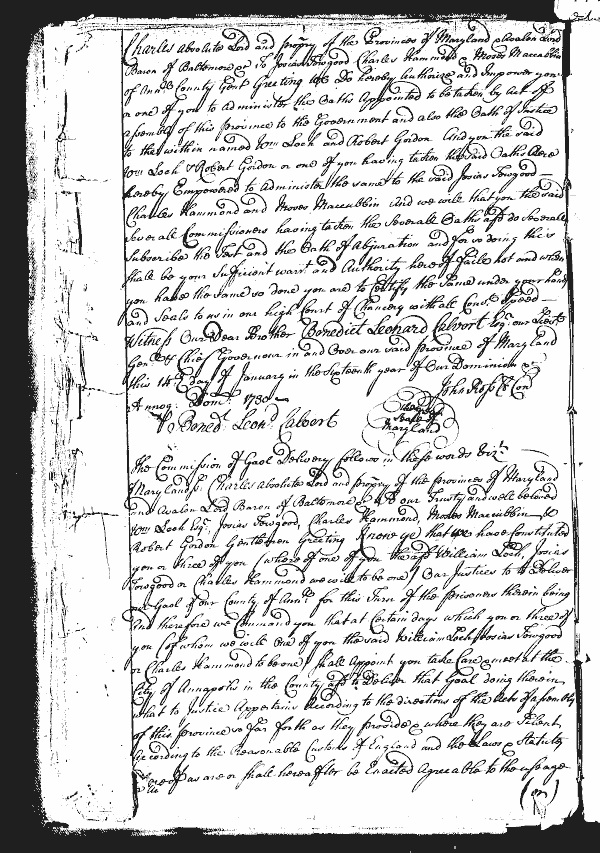 Charles absolute Lord and propry of the Provinces of Maryland & Avalon Lord
Baron of Baltemore &c To Josias Towgood Charles Hammond & Moses Maccubbin
of Ann Ar County Gent Greeting We Do hereby authorize and Impower you
or one of you to Administer the Oaths Appointed to be taken by act of
assembly of this Province to the Government and also the Oath of Justice
to the within named Wm Lock and Robert Gordon And you the said
Wm Lock & Robert Gordon or one of you having taken the said Oaths Are
hereby Empowered to Administer the same to the said Josias Towgood
Charles Hammond and Moses Maccubbin And we will that you the said
severale Commissioners having taken the severale Oaths afd do severaly
Subscribe the Test and the Oath of Abjuration and for so doing this
shall be your Sufficient warrt and Authority hereof faile not and when
you have the same so done you are to Certify the same under your hands
and Seals to us in our high Court of Chancery with all Conv. Speed
Witness Our Dear Brother Benedict Leonard Calvert Esqr our Lieut
Genl & Chief Governour in and Over our said province of Maryland
this 14th day of January in the sixteenth year of Our Dominion &c
Annoq Dom 1730
John Ross Cl Con
Bened Leon Calvert
Seale of
Maryland
The Commission of Gaol Delivery follows in these words Vizt
Maryland ss. Charles absolute Lord and propry of the provinces of Maryland
and Avalon Lord Baron of Baltemore &c To our Trusty and well beloved
Wm Lock Esqr, Josias Towgood, Charles Hammond, Moses Maccubbin &
Robert Gordon Gentlemen Greeting Know ye that we have Constituted
you or three of you (whereof one of you the afd William Lock, Josias
Towgood or Charles Hammond we will to be one) Our Justices to Deliver
Gaol of our County of Ann Arl for this Turn of the prisoners therein being
And therefore we Command you that at Certain days which you or three of
you (of whom we will One of you the said William Lock Josias Towgood
or Charles Hammond to be one) shall Appoint you take Care & meet at the
City of Annapolis in the County afd to Deliver that Goal doing therein
what to Justice Appertains According to the directions of the Acts of assembly
of this province so far forth as they provide & where they are Silent
According to the Reasonable Customs of England and the Laws & Statutes
thereof as are or shall hereaffter be Enacted Agreeable to the usage